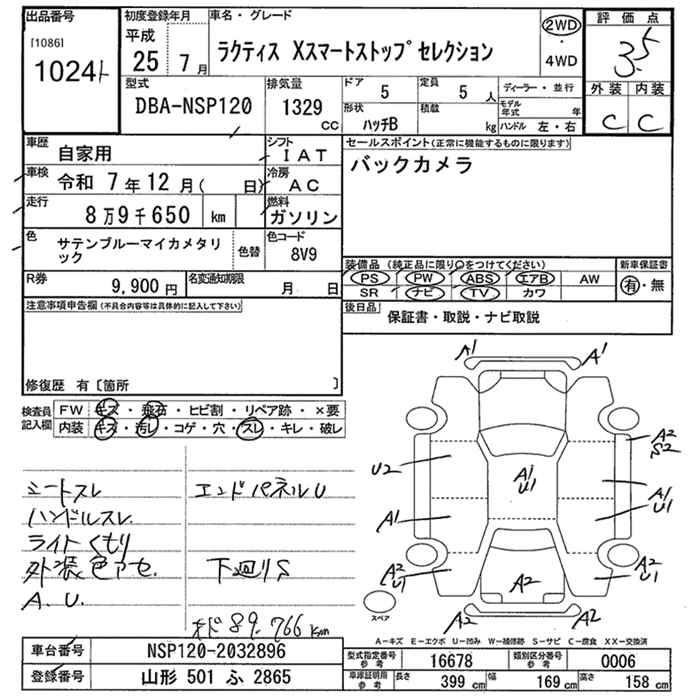 出品番号
[1086]
1024ト
初度登録年月
平成
25年 7月
車名・グレード
ラクティス Xスマートストップセレクション
2WD
・
4WD
評価点
3.5
外装 内装
C C
型式
DBA-NSP120
排気量
1329
CC
ドア 5
定員 5人
形状 ハッチB
積載 kg
ディーラー・並行
モデル年式 年
ハンドル 左・右
車歴 自家用
シフト IAT
車検 令和 7年12月( 日)
冷房 AC
走行 8万9千650 km
燃料 ガソリン
色 サテンブルーマイカメタリック
色替
色コード 8V9
R券 9,900円
名変通知期限 月 日
セールスポイント(正常に機能するものに限ります)
バックカメラ
装備品 (純正品に限り○をつけてください)
新車保証書
PS PW ABS エアB AW
有・無
SR ナビ TV カワ
後日品 保証書・取説・ナビ取説
注意事項申告欄(不具合内容等は具体的に記入して下さい)
修復歴 有〔箇所 〕
検査員記入欄
FW キズ・飛石・ヒビ割・リペア跡・×要
内装 キズ・汚レ・コゲ・穴・スレ・キレ・破レ
シートスレ
ハンドルスレ.
ライトくもり
外装色アセ.
A.U.
エンドパネルU
下廻りS
オド89.766km
A1
A1
A2
S2
U2
A1
U1
A1
U1
A1
A2
U1
A2
U1
A2
A2
A2
スペア
A-キズ E-エクボ U-凹み W-補修跡 S-サビ C-腐食 XX-交換済
車台番号 NSP120-2032896
登録番号 山形 501 ふ 2865
型式指定番号 参考 16678
類別区分番号 参考 0006
車庫証明用 参考
長さ 399 cm
幅 169 cm
高さ 158 cm